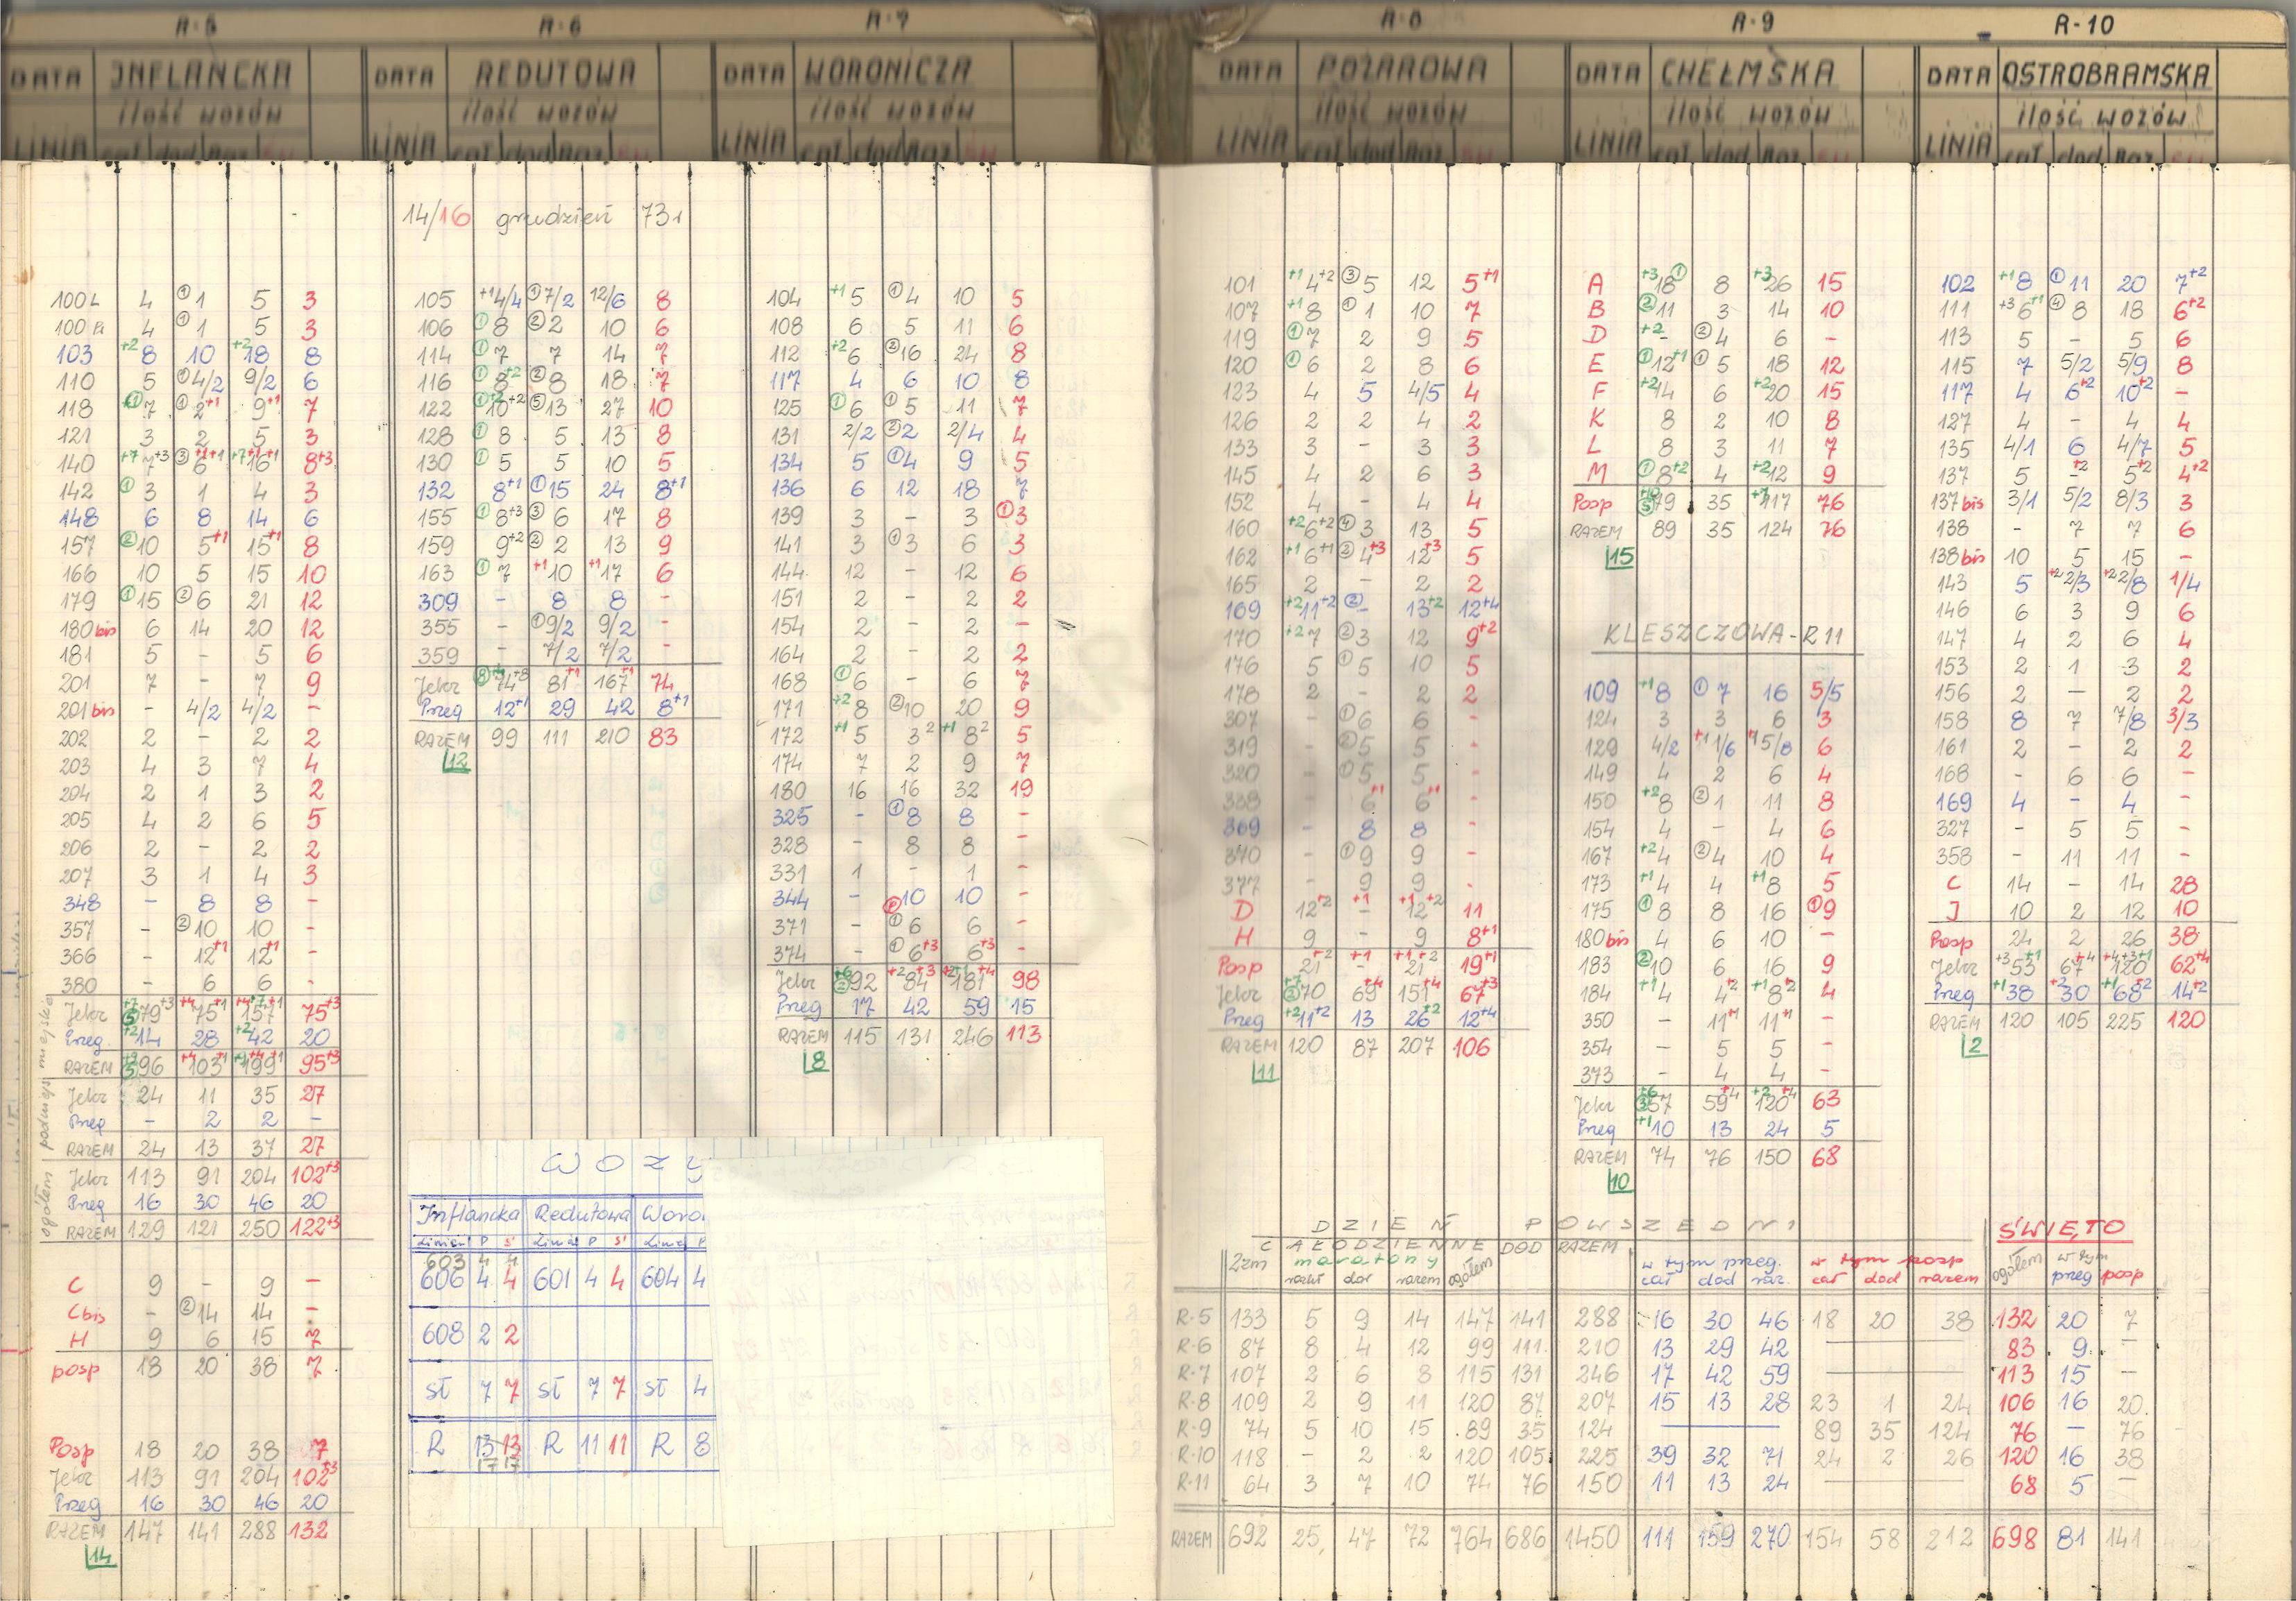 R-5 R-6 R-7 R-8 R-9 R-10
DATA INFLANCKA DATA REDUTOWA DATA WORONICZA DATA POŻAROWA DATA CHEŁMSKA DATA OSTROBRAMSKA
ilość wozów ilość wozów ilość wozów ilość wozów ilość wozów ilość wozów
LINIA cał dod Raz LINIA cał dod Raz LINIA cał dod Raz LINIA cał dod Raz LINIA cał dod Raz LINIA cał dod Raz
100 4 ① 1 5 3
4 ① 1 5 3
103 +2 8 10 +2 18 8
110 5 ① 4/2 9/2 6
118 7 ① 2 +1 9 +1 7
121 3 2 5 3
140 +7 7 +3 ③ 6 +1 +1 16 8 +3
142 ① 3 1 4 3
148 6 8 14 6
157 ② 10 5 +1 15 +1 8
166 10 5 15 10
179 ① 15 ② 6 21 12
180 bis 6 14 20 12
181 5 - 5 6
201 7 - 7 9
201 bis - 4/2 4/2 -
202 2 - 2 2
203 4 3 7 4
204 2 1 3 2
205 4 2 6 5
206 2 - 2 2
207 3 1 4 3
348 - 8 8 -
357 - ② 10 10 -
366 - 12 +1 12 +1 -
380 - 6 6 -
Jelcz 79 +3 75 +1 157 75 +3
Preg. +2 14 28 +2 42 20
RAZEM 96 103 199 95 +3
ogółem podmiejskie
Jelcz 24 11 35 27
Preg - 2 2 -
RAZEM 24 13 37 27
Jelcz 113 91 204 102 +3
Preg 16 30 46 20
RAZEM 129 121 250 122 +3
C 9 - 9 -
C bis - ② 14 14 -
H 9 6 15 7
posp 18 20 38 7
Posp 18 20 38 7
Jelcz 113 91 204 102 +3
Preg 16 30 46 20
RAZEM 147 141 288 132
14
14/16 grudzień 73 r
105 +1 4/4 ① 7/2 12/6 8
106 ① 8 ② 2 10 6
114 ① 7 7 14 7
116 ① 8 +2 ② 8 18 7
122 10 +2 ⑤ 13 27 10
128 ① 8 5 13 8
130 ① 5 5 10 5
132 8 +1 ① 15 24 8 +1
155 ① 8 +3 ③ 6 17 8
159 9 +2 ② 2 13 9
163 ① 7 +1 10 +1 17 6
309 - 8 8 -
355 - ① 9/2 9/2 -
359 - 7/2 7/2 -
Jelcz 74 +8 81 +1 167 +1 74
Preg 12 +1 29 42 8 +1
RAZEM 99 111 210 83
12
WOZY
Inflancka Redutowa Woro
Linia P Ś Linia P Ś Linia P
603 4 4
606 4 4 601 4 4 604 4
608 2 2
sł 7 7 sł 7 7 sł 4
R 13 13 R 11 11 R 8
17 17
104 +1 5 ① 4 10 5
108 6 5 11 6
112 +2 6 ② 16 24 8
117 4 6 10 8
125 ① 6 ① 5 11 7
131 2/2 ② 2 2/4 4
134 5 ① 4 9 5
136 6 12 18 7
139 3 - 3 ① 3
141 3 ① 3 6 3
144 12 - 12 6
151 2 - 2 2
154 2 - 2 -
164 2 - 2 2
168 ① 6 - 6 7
171 +2 8 ② 10 20 9
172 +1 5 3 2 +1 8 2 5
174 7 2 9 7
180 16 16 32 19
325 - ① 8 8 -
328 - 8 8 -
331 1 - 1 -
344 - 10 10 -
371 - ① 6 6 -
374 - ① 6 +3 6 +3 -
Jelcz +6 ② 92 +2 84 +3 181 +4 98
Preg 17 42 59 15
RAZEM 115 131 246 113
8
101 +1 4 +2 ③ 5 12 5 +1
107 +1 8 ① 1 10 7
119 ① 7 2 9 5
120 ① 6 2 8 6
123 4 5 4/5 4
126 2 2 4 2
133 3 - 3 3
145 4 2 6 3
152 4 - 4 4
160 +2 6 +2 ④ 3 13 5
162 +1 6 +1 ② 4 +3 12 +3 5
165 2 - 2 2
169 +2 11 +2 ② - 13 +2 12 +4
170 +2 7 ② 3 12 9 +2
176 5 ① 5 10 5
178 2 - 2 2
307 - ① 6 6 -
319 - ② 5 5 -
320 - ① 5 5 -
338 - 6 +1 6 +1 -
369 - 8 8 -
370 - ① 9 9 -
377 - 9 9 -
D 12 +2 +1 - +1 12 +2 11
H 9 - 9 8 +1
Posp 21 +2 +1 - +1 21 +2 19 +1
Jelcz +7 ② 70 69 +4 151 +4 67 +3
Preg +2 11 +2 13 26 +2 12 +4
RAZEM 120 87 207 106
11
A +3 18 ① 8 +3 26 15
B ② 11 3 14 10
D +2 - ② 4 6 -
E ① 12 +1 ① 5 18 12
F +2 14 6 +2 20 15
K 8 2 10 8
L 8 3 11 7
M ① 8 +2 4 +2 12 9
Posp +10 ⑤ 79 35 +7 117 76
RAZEM 89 35 124 76
15
KLESZCZOWA - R 11
109 +1 8 ① 7 16 5/5
124 3 3 6 3
129 4/2 +1 1/6 +1 5/8 6
149 4 2 6 4
150 +2 8 ② 1 11 8
154 4 - 4 6
167 +2 4 ② 4 10 4
173 +1 4 4 +1 8 5
175 ① 8 8 16 ① 9
180 bis 4 6 10 -
183 ② 10 6 16 9
184 +1 4 4 +2 +1 8 +2 4
350 - 11 +1 11 +1 -
354 - 5 5 -
373 - 4 4 -
Jelcz +6 ③ 57 59 +4 +2 120 +4 63
Preg +1 10 13 24 5
RAZEM 74 76 150 68
10
102 +1 8 ① 11 20 7 +2
111 +3 6 +1 ④ 8 18 6 +2
113 5 - 5 6
115 7 5/2 5/9 8
117 4 6 +2 10 +2 -
127 4 - 4 4
135 4/1 6 4/7 5
137 5 - +2 5 +2 4 +2
137 bis 3/1 5/2 8/3 3
138 - 7 7 6
138 bis 10 5 15 -
143 5 +2 2/3 +2 2/8 1/4
146 6 3 9 6
147 4 2 6 4
153 2 1 3 2
156 2 - 2 2
158 8 7 7/8 3/3
161 2 - 2 2
168 - 6 6 -
169 4 - 4 -
327 - 5 5 -
358 - 11 11 -
C 14 - 14 28
J 10 2 12 10
Posp 24 2 26 38
Jelcz +3 53 +1 67 +4 120 62 +4
Preg +1 38 +2 30 +1 68 +2 14 +2
RAZEM 120 105 225 120
2
DZIEŃ POWSZEDNI ŚWIĘTO
CAŁODZIENNE DOD RAZEM w tym preg. w tym posp ogółem w tym
2zm maratony ogółem cał dod raz. cał dod razem preg posp
rozkł dod razem
R-5 133 5 9 14 147 141 288 16 30 46 18 20 38 132 20 7
R-6 87 8 4 12 99 111 210 13 29 42 — 83 9 —
R-7 107 2 6 8 115 131 246 17 42 59 — 113 15 —
R-8 109 2 9 11 120 87 207 15 13 28 23 1 24 106 16 20
R-9 74 5 10 15 89 35 124 — 89 35 124 76 — 76
R-10 118 - 2 2 120 105 225 39 32 71 24 2 26 120 16 38
R-11 64 3 7 10 74 76 150 11 13 24 — 68 5 —
RAZEM 692 25 47 72 764 686 1450 111 159 270 154 58 212 698 81 141